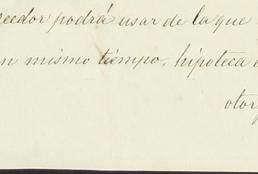 reedor podrá usar de la que
n mismo tiempo, hipoteca
otor